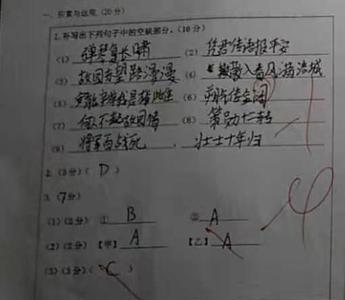 一、积累与运用(20分)
1.补写出下列句子中的空缺部分。(10分)
(1) 弹琴复长啸 (2) 凭君传语报平安
(3) 故园东望路漫漫 (4) 散入春风满洛城
(5) (6) 朔气传金
(7) 何人不起故园情 (8) 策勋十二转
(9) 将军百战死, 壮士十年归
2. (3分) ( D )
3. (7分)
(1) (2分) ① B ② A
(2) (2分) 【甲】 A 【乙】 A
(3) (3分) ( C )